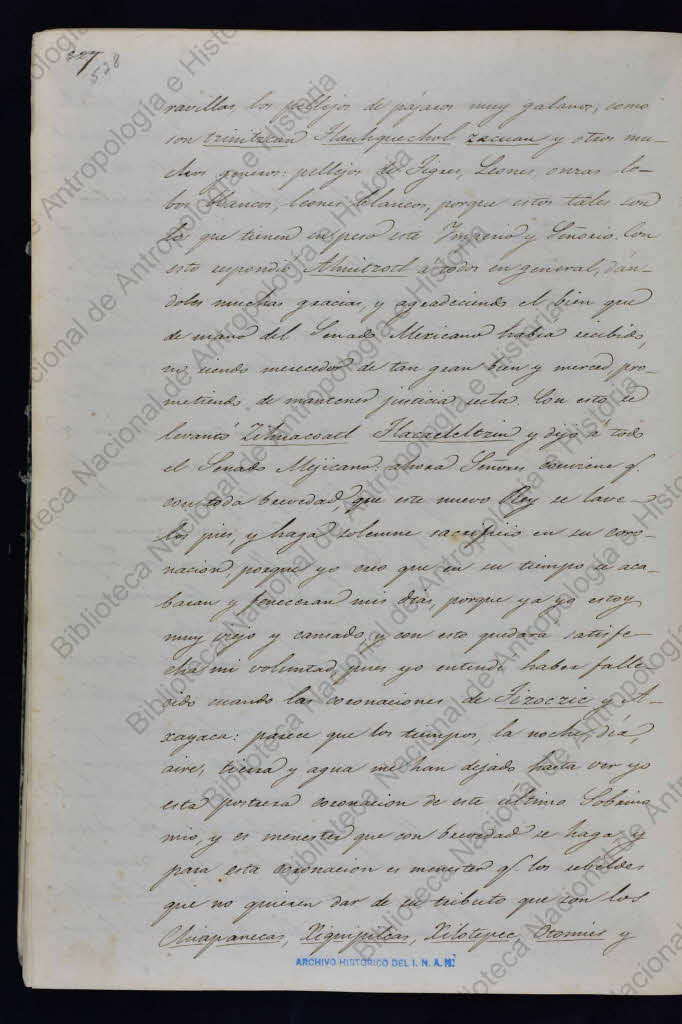 327
528
ravillas los pellejos de pájaros muy galanos, como
son tzinitzcan tlauhquechol zacuan y otros mu-
chos generos: pellejos de Tigres, Leones, onzas lo-
bos blancos, leones blancos, porque estos tales son
la que tienen en peso este Imperio y Señorio. Con
esto respondió Ahuitzotl a todos en general, dan-
doles muchas gracias, y agradeciendo el bien que
de mano del Senado Mexicano habia recibido,
no siendo merecedor de tan gran bien y merced, pro-
metiendo de mantener justicia recta. Con esto se
levantó Zihuacoatl Tlacaeleltzin y dijo á todo
el Senado Mejicano. ahora Señores conviene q.
con toda brevedad, que este nuevo Rey se lave
los pies, y haga solemne sacrificio en su coro-
nacion, porque yo creo que en su tiempo se aca-
baran y feneceran mis dias, porque ya yo estoy
muy viejo y cansado, y con esto quedara satisfe-
cha mi voluntad, pues yo entendi haber falle-
cido cuando las coronaciones de Tizoczic y A-
xayaca: parece que los tiempos, la noche, dia,
aire, tierra y agua me han dejado hasta ver yo
esta postrera coronacion de este último Sobrino
mio, y es menester que con brevedad se haga, y
para esta coronacion es menester q. los rebeldes
que no quieren dar de su tributo que son los
Chiapanecas, Xiquipilcas, Xilotepec, Otomies y
ARCHIVO HISTORICO DEL I. N. A. H.
Biblioteca Nacional de Antropología e Historia